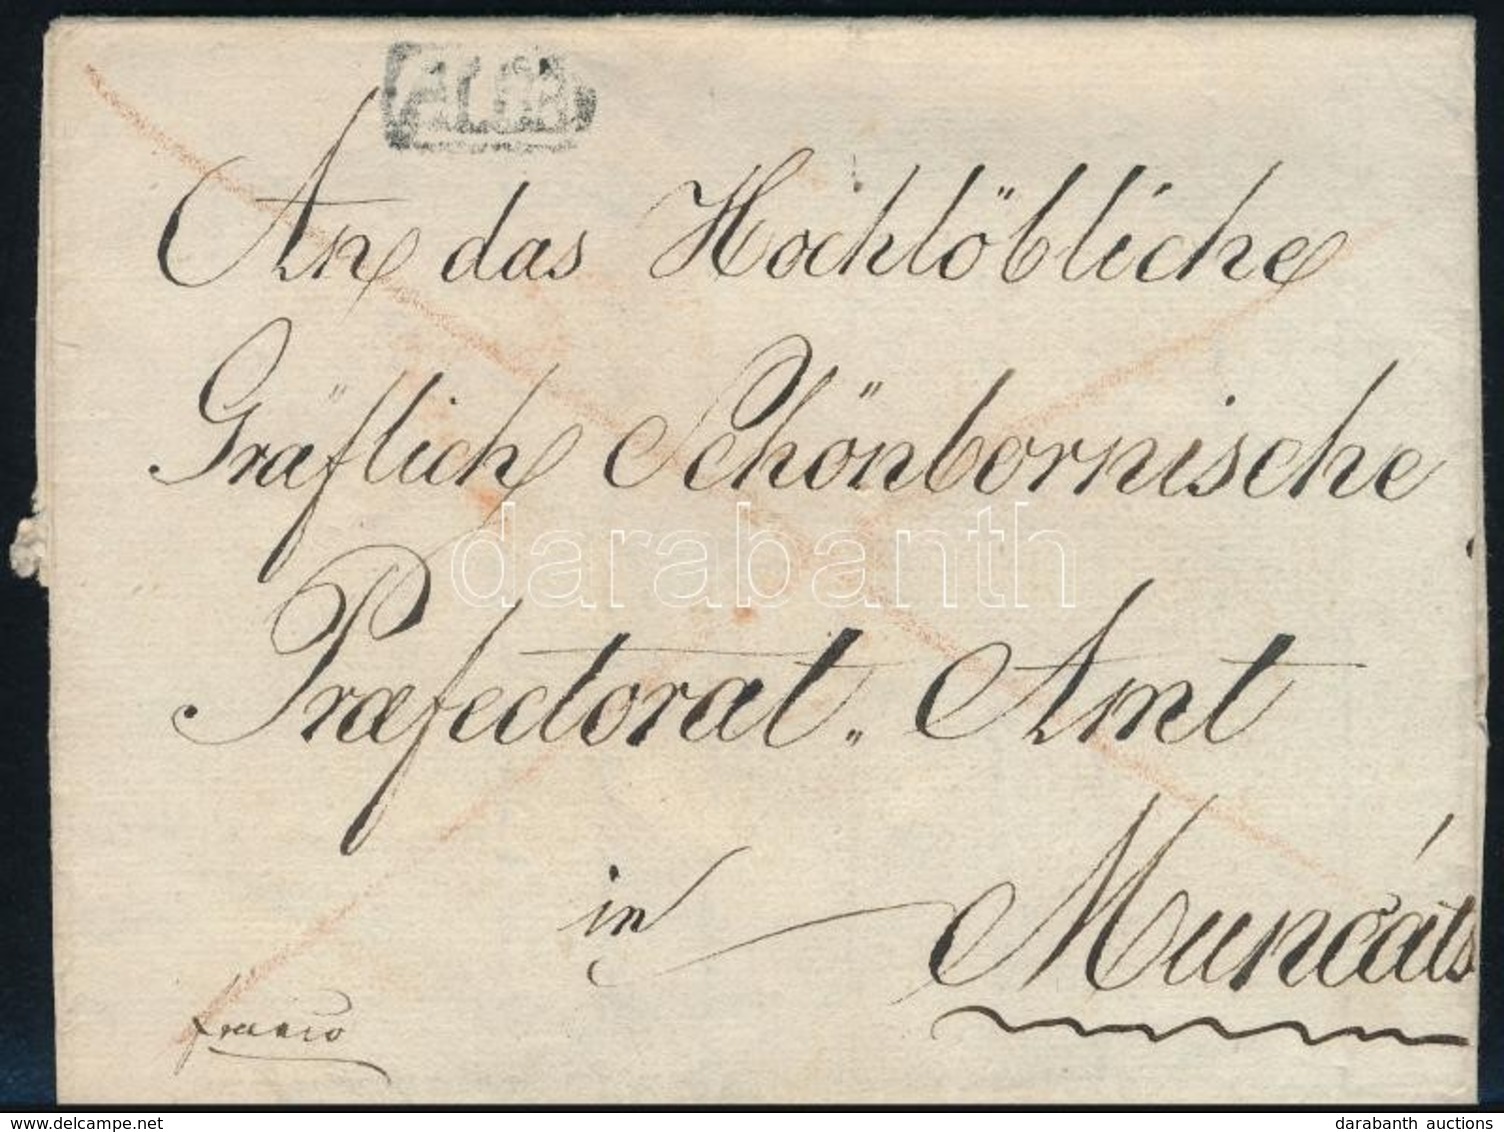 An das Hochlöbliche
Gräflich Schönbornische
Præfectorat„ Amt
in Muncáts
franco
darabanth
delcampe.net
darabanth auctions